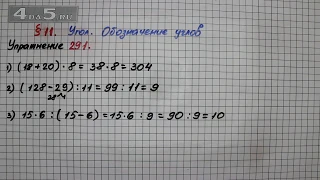 4a5.ru
§ 11. Угол. Обозначение углов
Упражнение 291.
1) (18+20) · 8 = 38 · 8 = 304
2) (128-29) : 11 = 99 : 11 = 9
3) 15·6 : (15-6) = 15·6 : 9 = 90 : 9 = 10